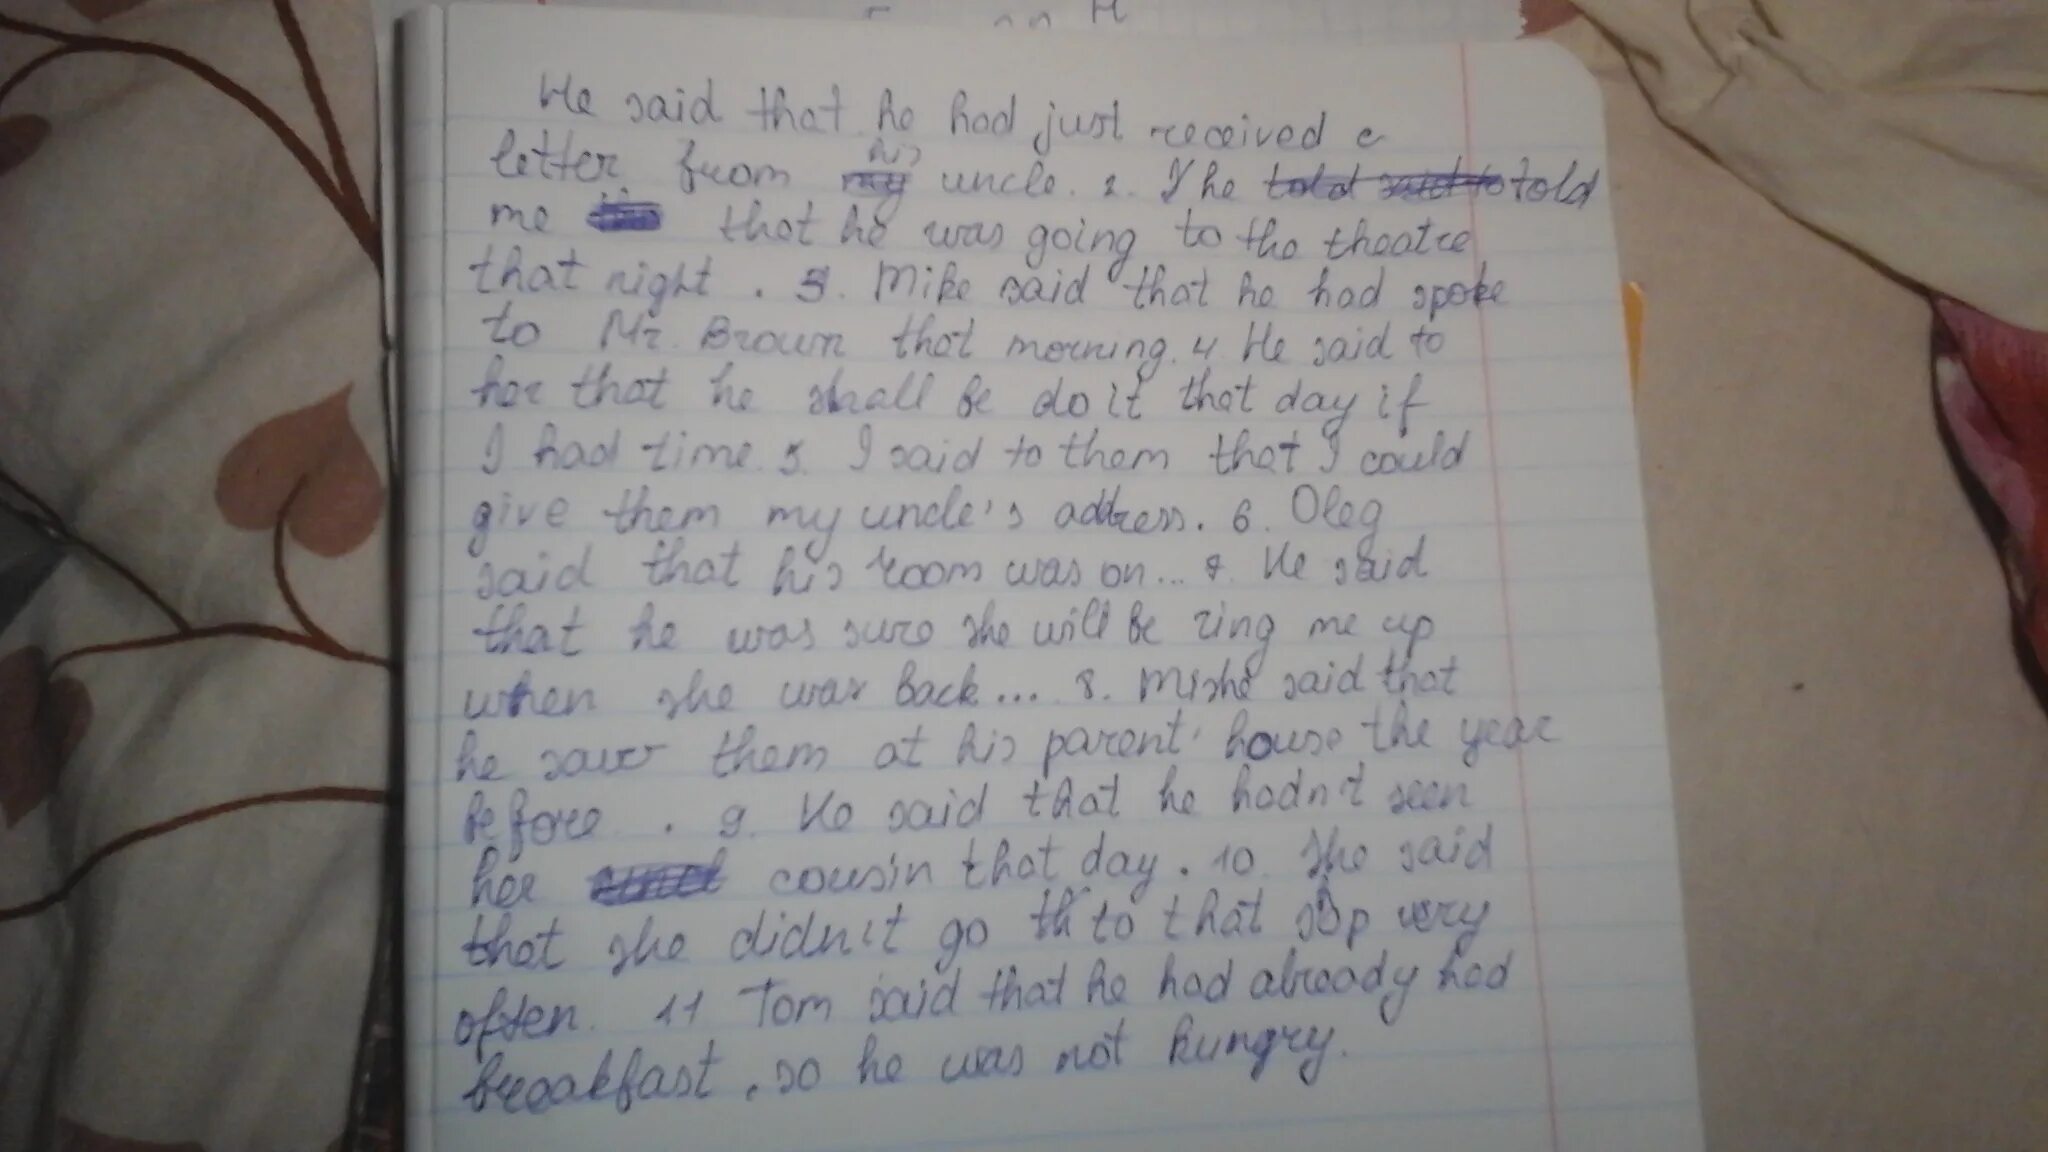 He said that he had just received a
letter from his uncle. 2. The told
me that he was going to the theatre
that night. 3. Mike said that he had spoke
to Mr. Brown that morning. 4. He said to
her that he shall be do it that day if
I had time. 5. I said to them that I could
give them my uncle's address. 6. Oleg
said that his room was on... 7. He said
that he was sure she will be ring me up
when she was back... 8. Misha said that
he saw them at his parent' house the year
before. 9. He said that he hadn't seen
her cousin that day. 10. She said
that she didn't go to that shop very
often. 11 Tom said that he had already had
breakfast, so he was not hungry.